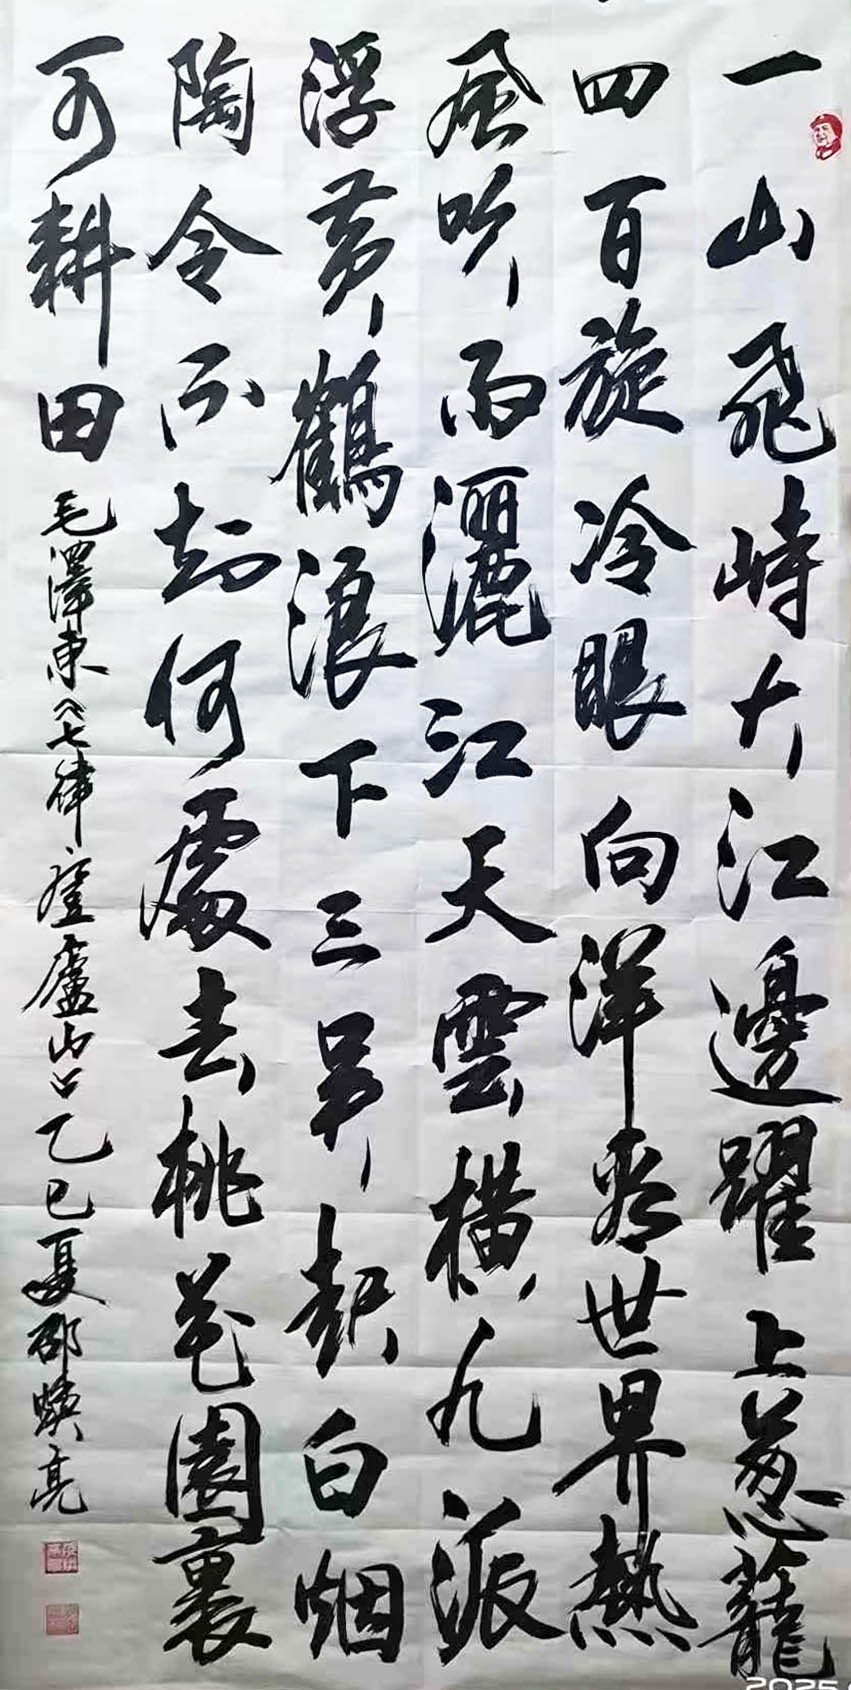 一山飛峙大江邊躍上葱蘢
四百旋冷眼向洋看世界熱
風吹雨灑江天雲橫九派
浮黄鶴浪下三吴起白烟
陶令不知何處去桃花園裏
可耕田 毛澤東《七律·登廬山》乙巳夏邵焕亮
2025